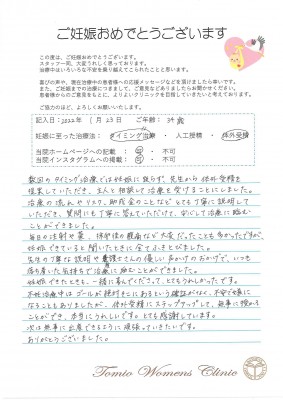 ご妊娠おめでとうございます
この度は、ご妊娠おめでとうございます。
スタッフ一同、大変うれしく思っております。
治療中はいろいろな不安を乗り越えてこられたことと思います。
喜びの声や、現在治療中の方への応援メッセージなどを頂けましたら幸いです。
また、ご妊娠までの治療につきまして、ご意見などありましたらお聞かせください。
患者様からのご意見をもとに、よりよいクリニックを目指していきたいと考えております。
ご協力のほど、よろしくお願いします。
記入日：2022年 1月 23日 ご年齢：34歳
妊娠に至った治療法：タイミング治療・人工授精・体外受精
当院ホームページへの記載：可・不可
当院インスタグラムへの掲載：可・不可
数回のタイミング治療では妊娠に至らず、先生から体外受精を
提案していただき、主人と相談して治療を受けることにしました。
治療の流れやリスク、助成金のことなど、とても丁寧に説明して
いただき、質問にも丁寧に答えていただけて、安心して治療に臨む
ことができました。
毎日の注射や薬、採卵後の腹痛など大変だったことも多かったですが、
妊娠できていると聞いたときに全てふきとびました。
先生の丁寧な説明や看護士さんの優しい声かけのおかげで、いつも
落ち着いた気持ちで治療に臨むことができました。
妊娠できたときも、一緒に喜んでくださって、とてもうれしかったです。
不妊治療中はゴールが絶対そこにあるという確証がなく、不安で
なることもありましたが、体外受精にステップアップして、無事に授かる
ことができ、本当にうれしいです。とても感謝しています。
次は無事に出産できるように頑張っていきたいです。
ありがとうございました。
Tomio Womens Clinic